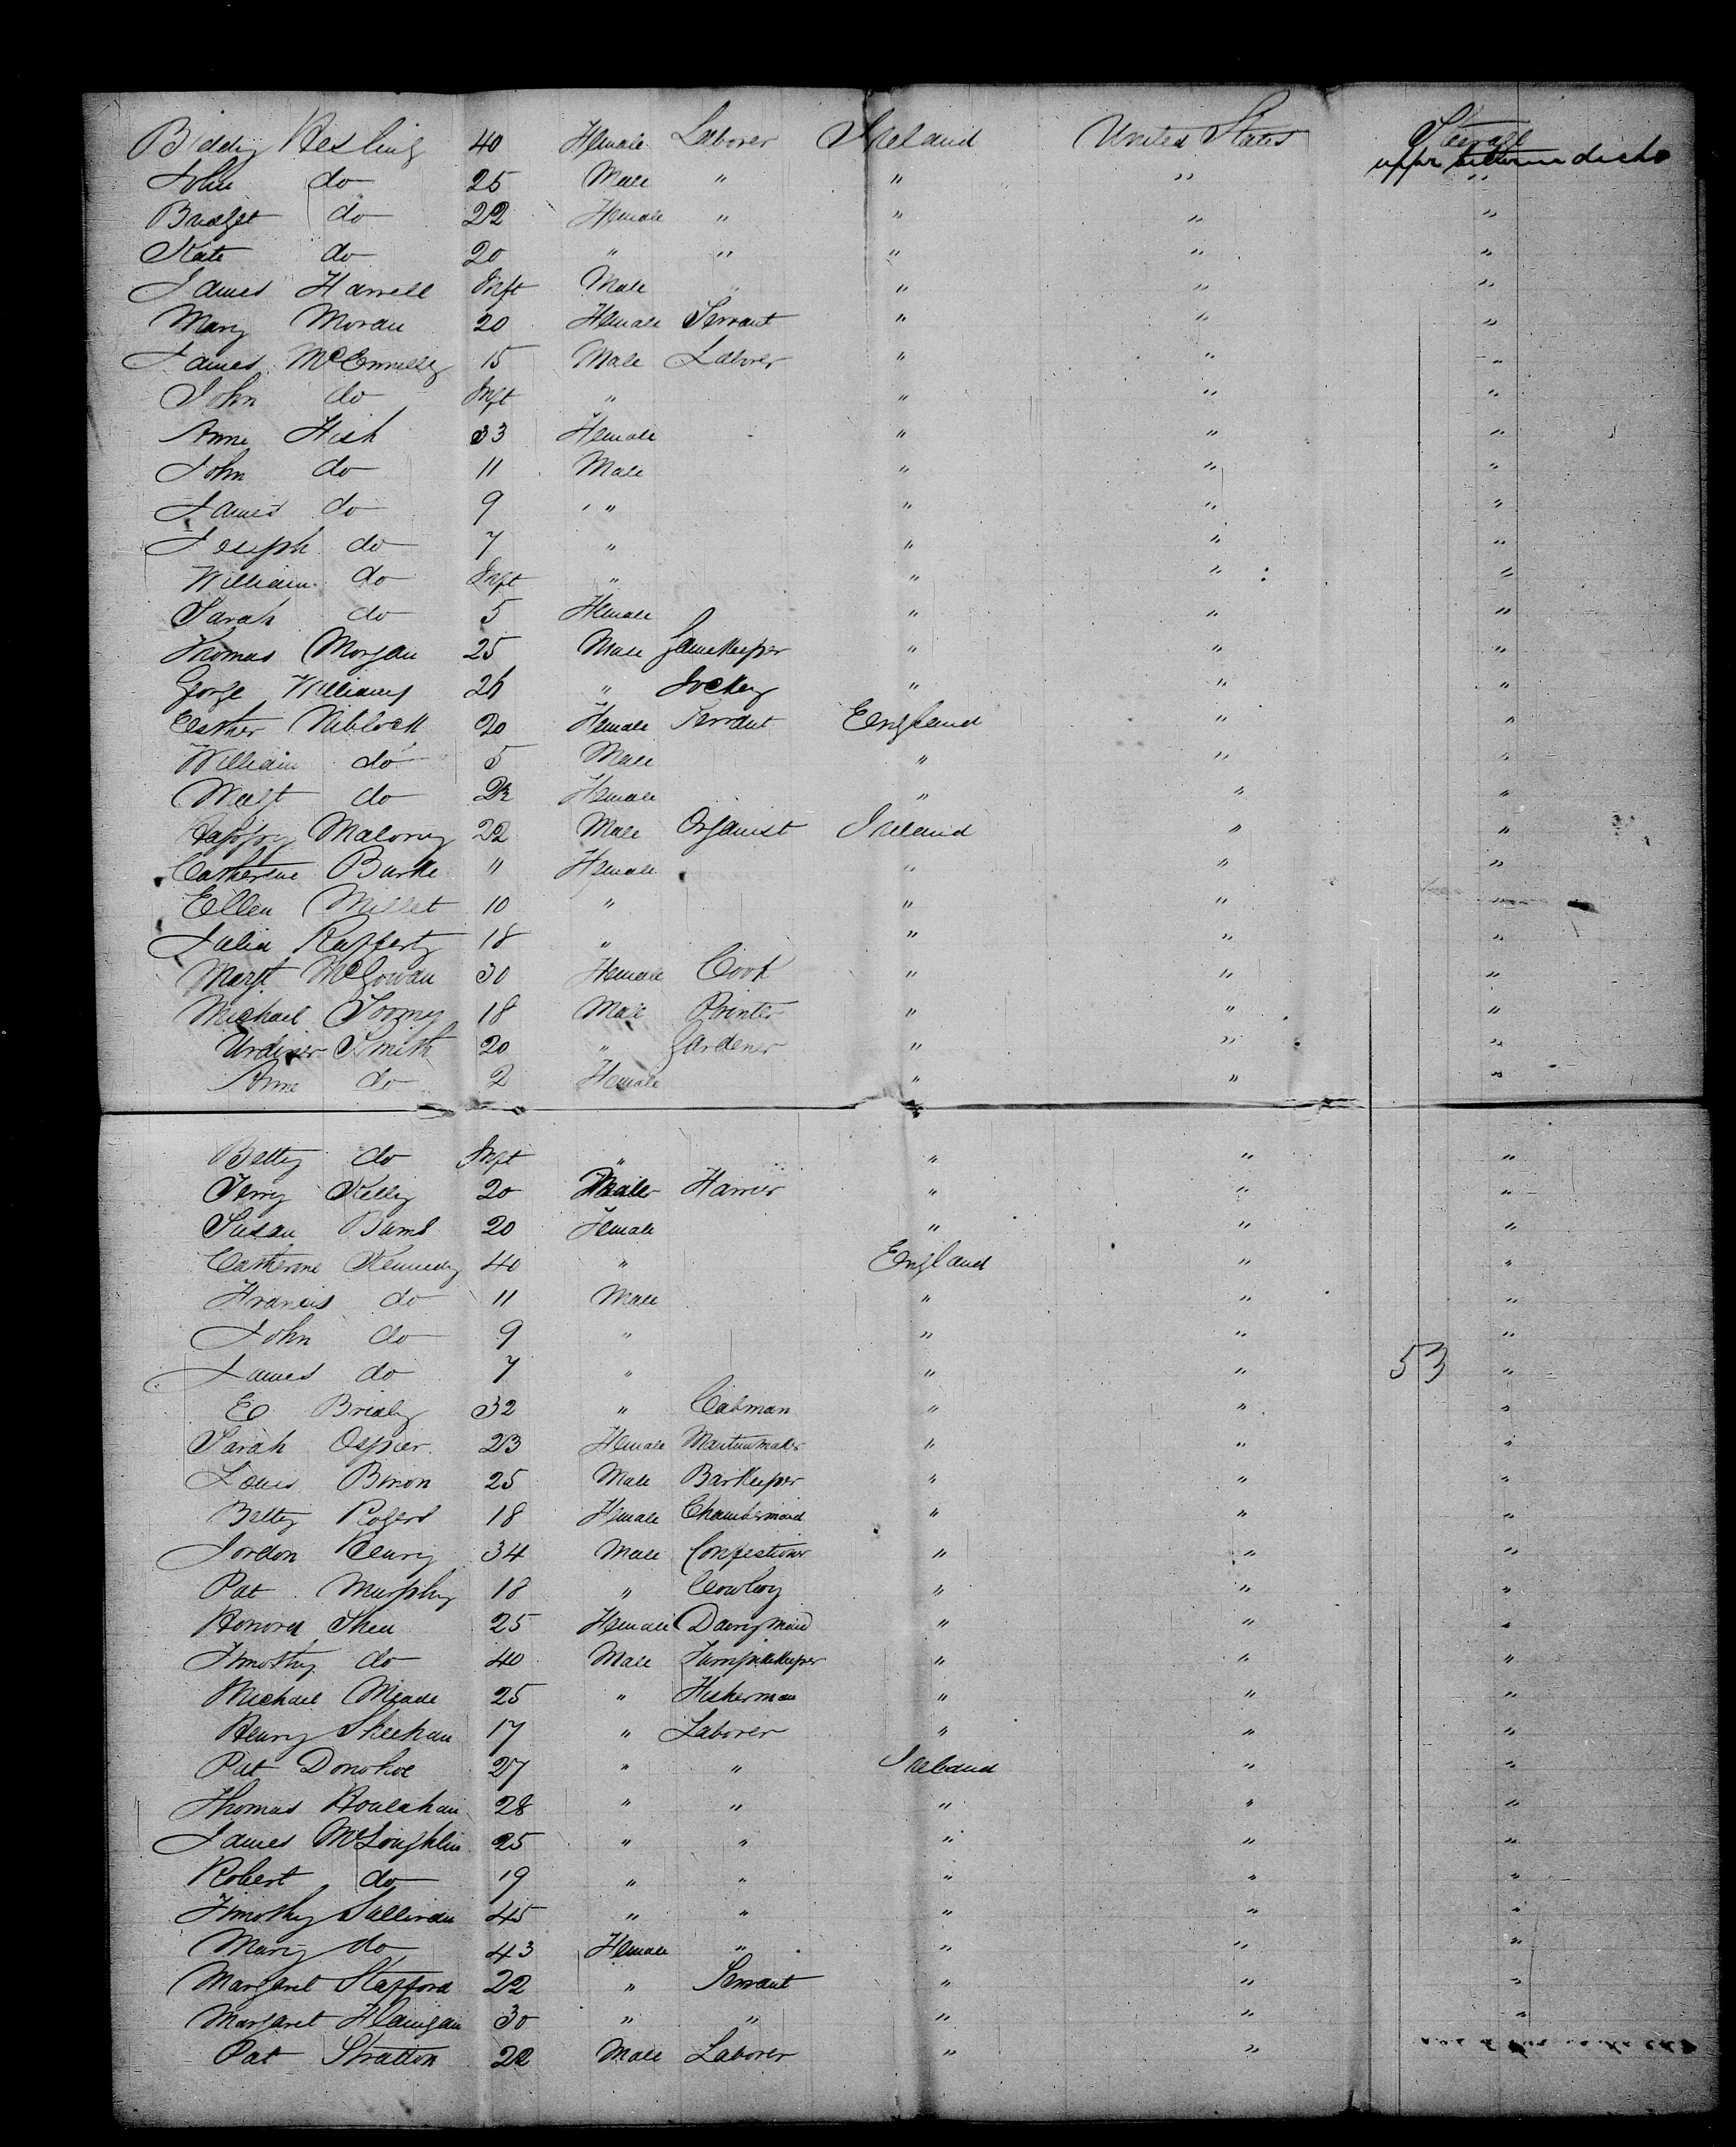 Biddy Kesling 40 Female Laborer Ireland United States Steerage
upper between decks
John do 25 Male " " " "
Bridget do 22 Female " " " "
Kate do 20 " " " " "
James Harrell Inft Male " " " "
Mary Moran 20 Female Servant " " "
James McEnnelly 15 Male Laborer " " "
John do Inft " " " "
Anne Fish 33 Female " " "
John do 11 Male " " "
James do 9 " " " "
Joseph do 7 " " " "
William do Inft " " " "
Sarah do 5 Female " " "
Thomas Morgan 25 Male Gamekeeper " " "
George Williams 26 " Jockey " " "
Esther Niblock 20 Female Servant England " "
William do 5 Male " " "
Margt do 22 Female " " "
Maloney 22 Male Organist Ireland " "
Catherine Burke 11 Female " " "
Ellen Millet 10 " " " "
Julia Rafferty 18 " " " "
Margt McGowan 30 Female Cook " " "
Michael Toomy 18 Male Printer " " "
Smith 20 " Gardener " " "
Anne do 2 Female " " "
Betty do Inft " " " "
Terry Kelly 20 Male Farrier " " "
Susan Burns 20 Female " " "
Catherine Kennedy 40 " England " "
Francis do 11 Male " " "
John do 9 " " " "
James do 7 " " " 53 "
E Briely 32 " Cabman " " "
Sarah Ospier 23 Female Mantuamaker " " "
Louis Binon 25 Male Barkeeper " " "
Betty Rogers 18 Female Chambermaid " " "
Jordon Henry 34 Male Confestioner " " "
Pat Murphy 18 " Cowboy " " "
Honora Shea 25 Female Dairymaid " " "
Timothy do 40 Male Turnpikekeeper " " "
Michael Meade 25 " Fisherman " " "
Henry Sheehan 17 " Laborer " " "
Pat Donohoe 27 " " Ireland " "
Thomas Houlahan 28 " " " " "
James McLoughlin 25 " " " " "
Robert do 19 " " " " "
Timothy Sullivan 45 " " " " "
Mary do 43 Female " " " "
Margaret Stafford 22 " Servant " " "
Margaret Flanigan 30 " " " " "
Pat Stratton 22 Male Laborer " "